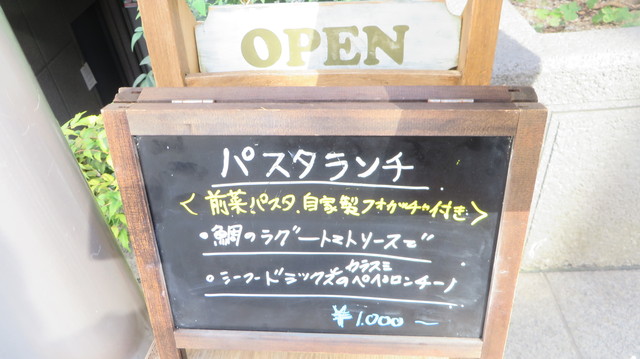 OPEN
パスタランチ
<前菜、パスタ、自家製フォカッチャ付き>
・鯛のラグートマトソースで
カラスミ
・シーフードミックスのペペロンチーノ
¥1,000〜